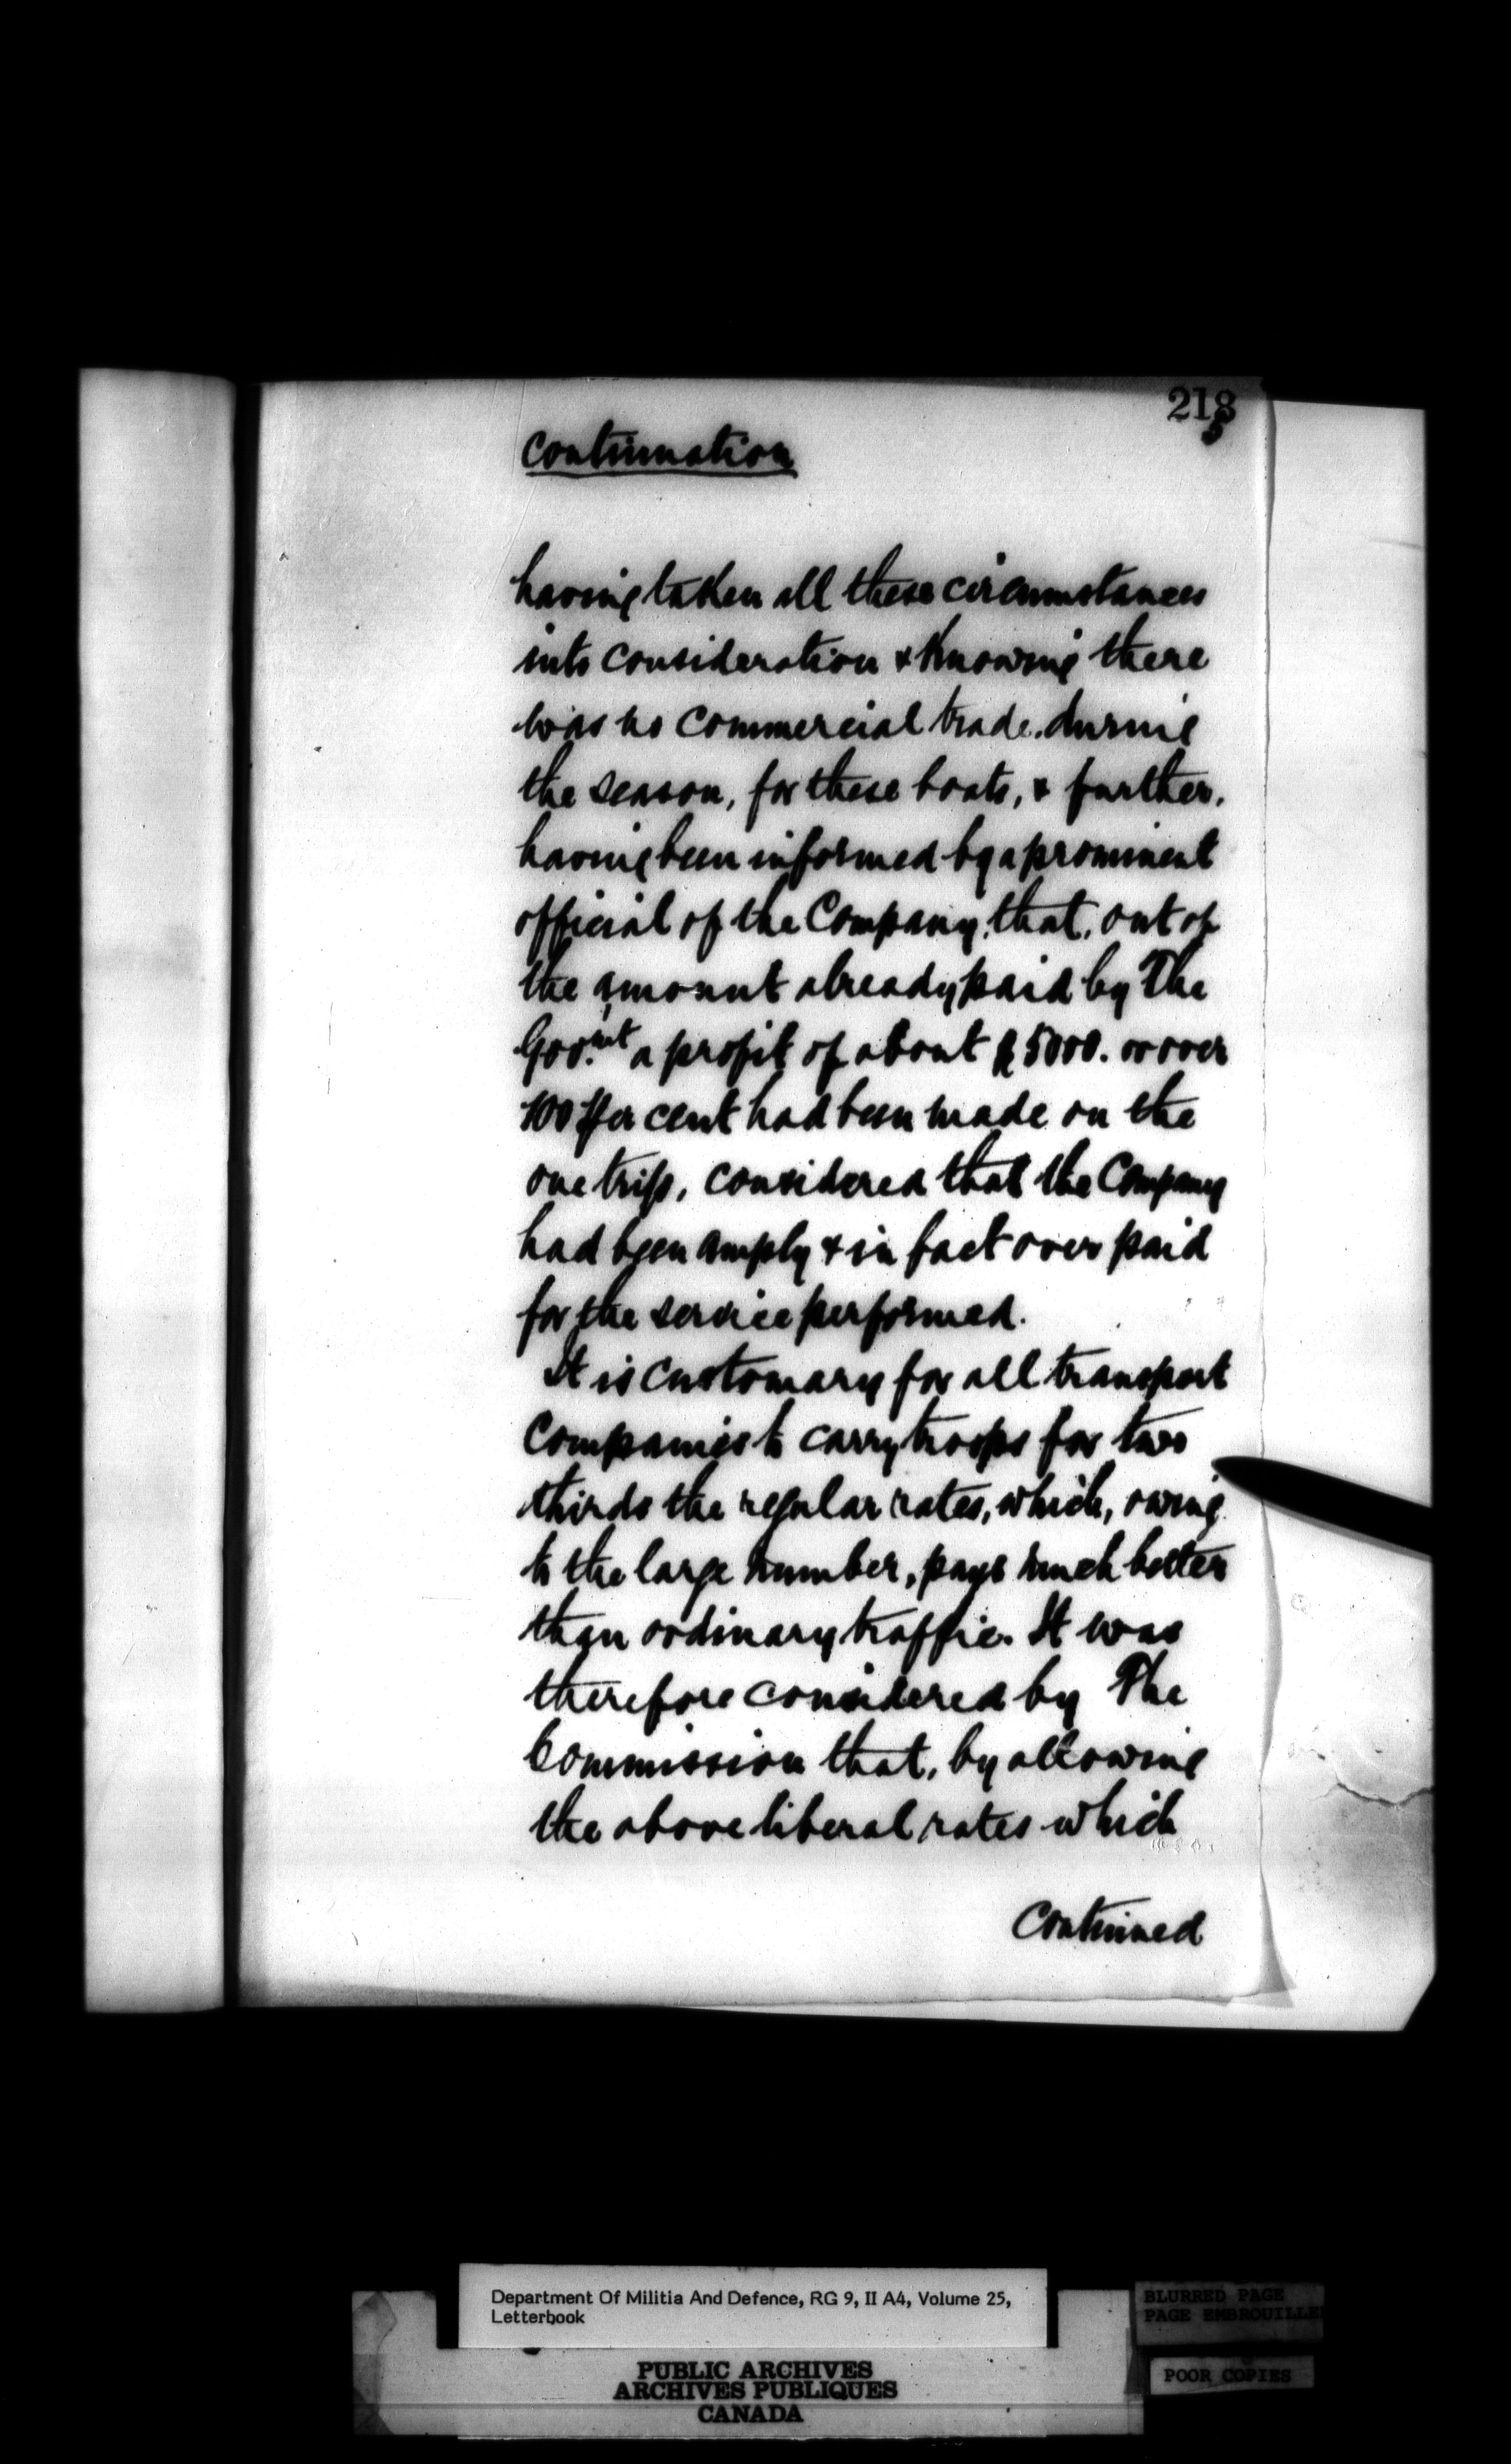 213
Continuation
having taken all these circumstances
into consideration & knowing there
was no commercial trade, during
the season, for these boats, & further,
having been informed by a prominent
official of the Company, that, out of
the amount already paid by The
Gov.mt a profit of about $5000. or over
100 per cent had been made on the
one trip, considered that the Company
had been amply & in fact over paid
for the service performed.
It is customary for all transport
Companies to carry troops for two
thirds the regular rates, which, owing
to the large number, pays much better
than ordinary traffic. It was
therefore considered by The
Commission that, by allowing
the above liberal rates which
Continued
Department Of Militia And Defence, RG 9, II A4, Volume 25,
Letterbook
BLURRED PAGE
PAGE EMBROUILLE
POOR COPIES
PUBLIC ARCHIVES
ARCHIVES PUBLIQUES
CANADA